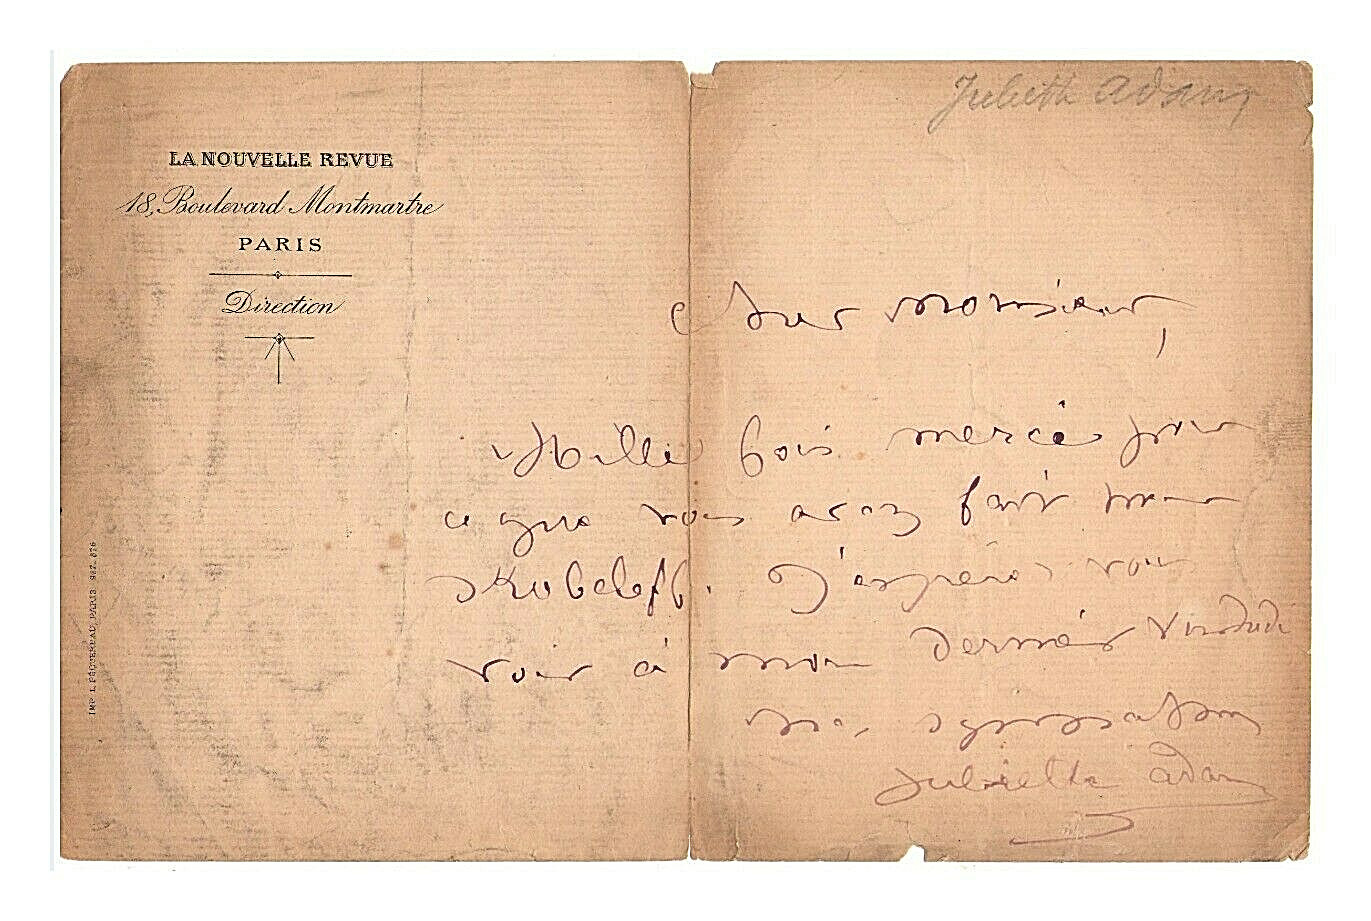 Juliette Adam
LA NOUVELLE REVUE
18, Boulevard Montmartre
PARIS
Direction
Cher Monsieur,
Mille fois merci pour
ce que vous avez fait pour
Skobeleff. J'espérais vous
voir à mon dernier vendredi
sympathies
Juliette Adam
IMP. L. PÉQUEREAU, PARIS